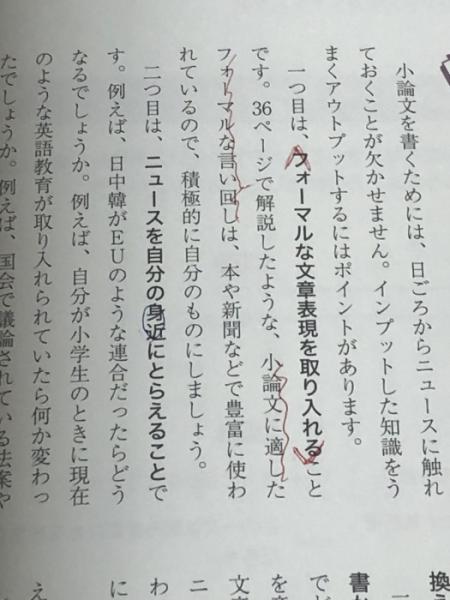 小論文を書くためには、日ごろからニュースに触れ
ておくことが欠かせません。インプットした知識をう
まくアウトプットするにはポイントがあります。
一つ目は、フォーマルな文章表現を取り入れること
です。36ページで解説したような、小論文に適した
フォーマルな言い回しは、本や新聞などで豊富に使わ
れているので、積極的に自分のものにしましょう。
二つ目は、ニュースを自分の身近にとらえることで
す。例えば、日中韓がEUのような連合だったらどう
なるでしょうか。例えば、自分が小学生のときに現在
のような英語教育が取り入れられていたら何か変わっ
たでしょうか。例えば、国会で議論されている法案や
換
書か
でど
を意
文章
ニ
わ
に
え